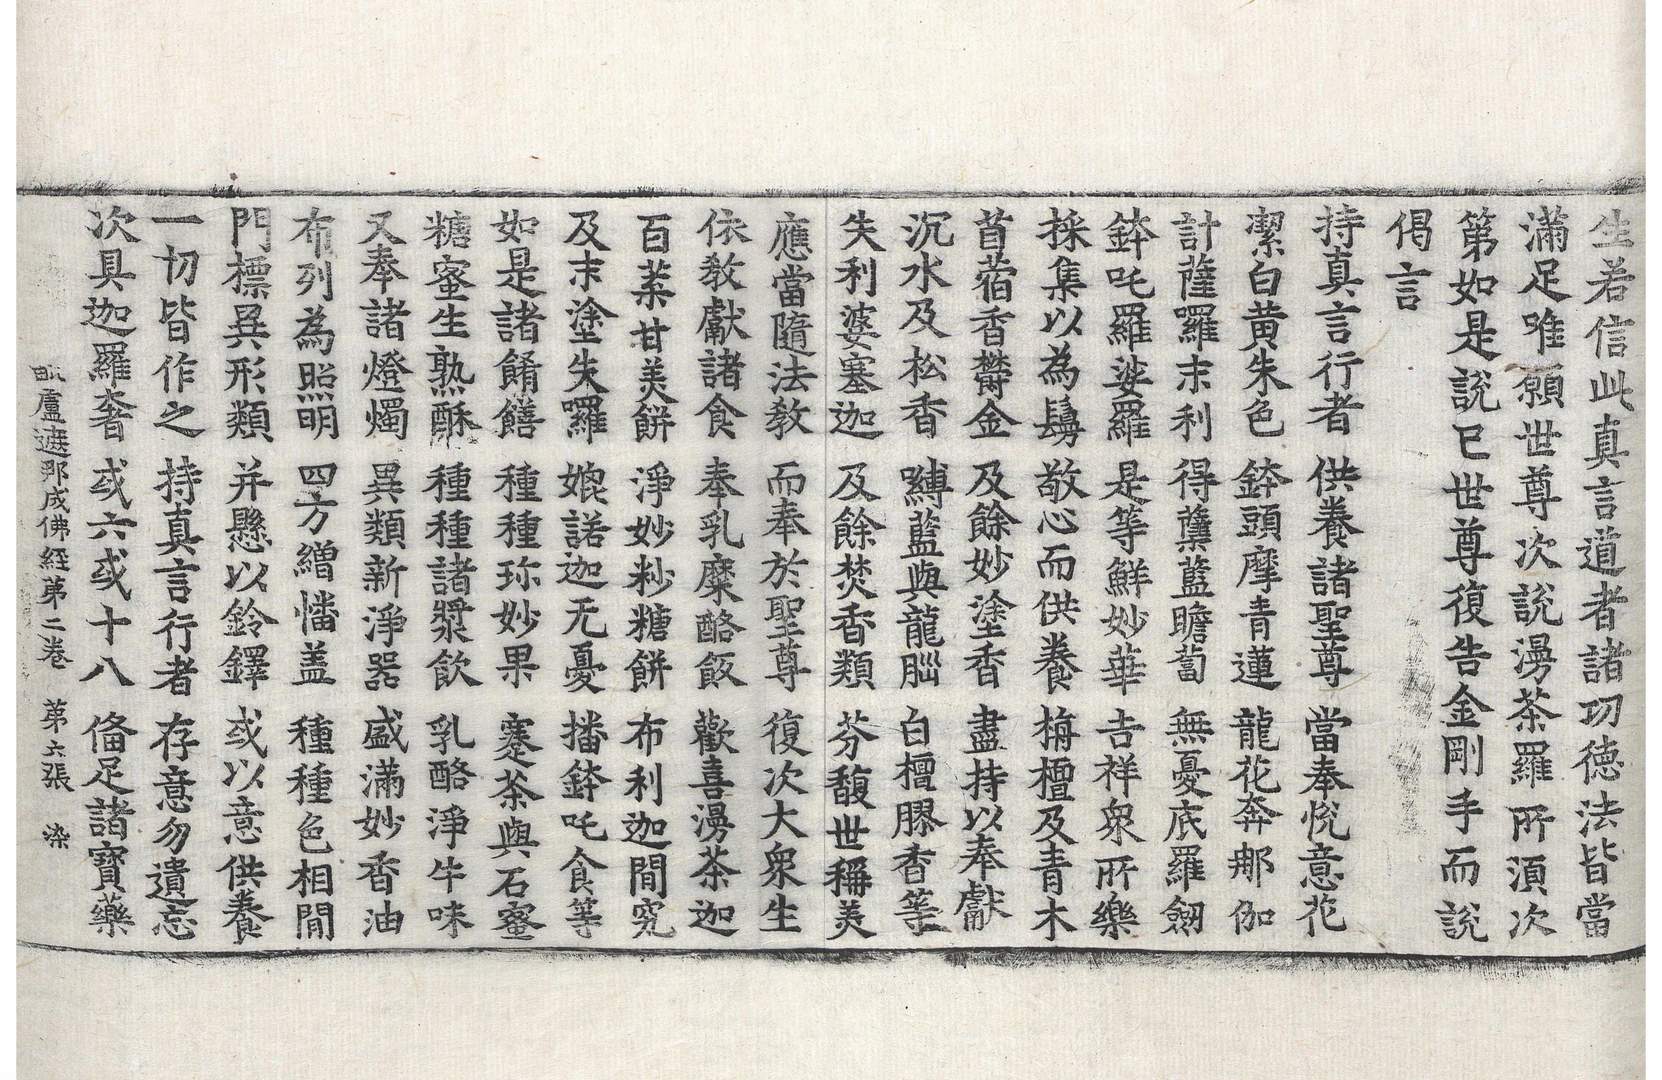 生若信此真言道者諸功德法皆當
滿足唯願世尊次說漫荼羅所須次
第如是說已世尊復告金剛手而說
偈言
持真言行者 供養諸聖尊 當奉悅意花
潔白黃朱色 鉢頭摩青蓮 龍花奔那伽
計薩囉末利 得蘖藍瞻蔔 無憂底羅劒
鉢吒羅娑羅 是等鮮妙華 吉祥衆所樂
採集以為鬘 敬心而供養 栴檀及青木
苜蓿香欝金 及餘妙塗香 盡持以奉獻
沉水及松香 嚩藍與龍腦 白檀膠香等
失利婆塞迦 及餘焚香類 芬馥世稱美
應當隨法教 而奉於聖尊 復次大衆生
依教獻諸食 奉乳糜酪飯 歡喜漫荼迦
百葉甘美餅 淨妙粆糖餅 布利迦間究
及末塗失囉 媲諾迦无憂 播鉢吒食等
如是諸餚饍 種種珎妙果 蹇荼與石蜜
糖蜜生熟酥 種種諸漿飲 乳酪淨牛味
又奉諸燈燭 異類新淨器 盛滿妙香油
布列為照明 四方繒幡盖 種種色相間
門標異形類 并懸以鈴鐸 或以意供養
一切皆作之 持真言行者 存意勿遺忘
次具迦羅奢 或六或十八 俻足諸寶藥
毗盧遮那成佛經第二卷 第六張 染